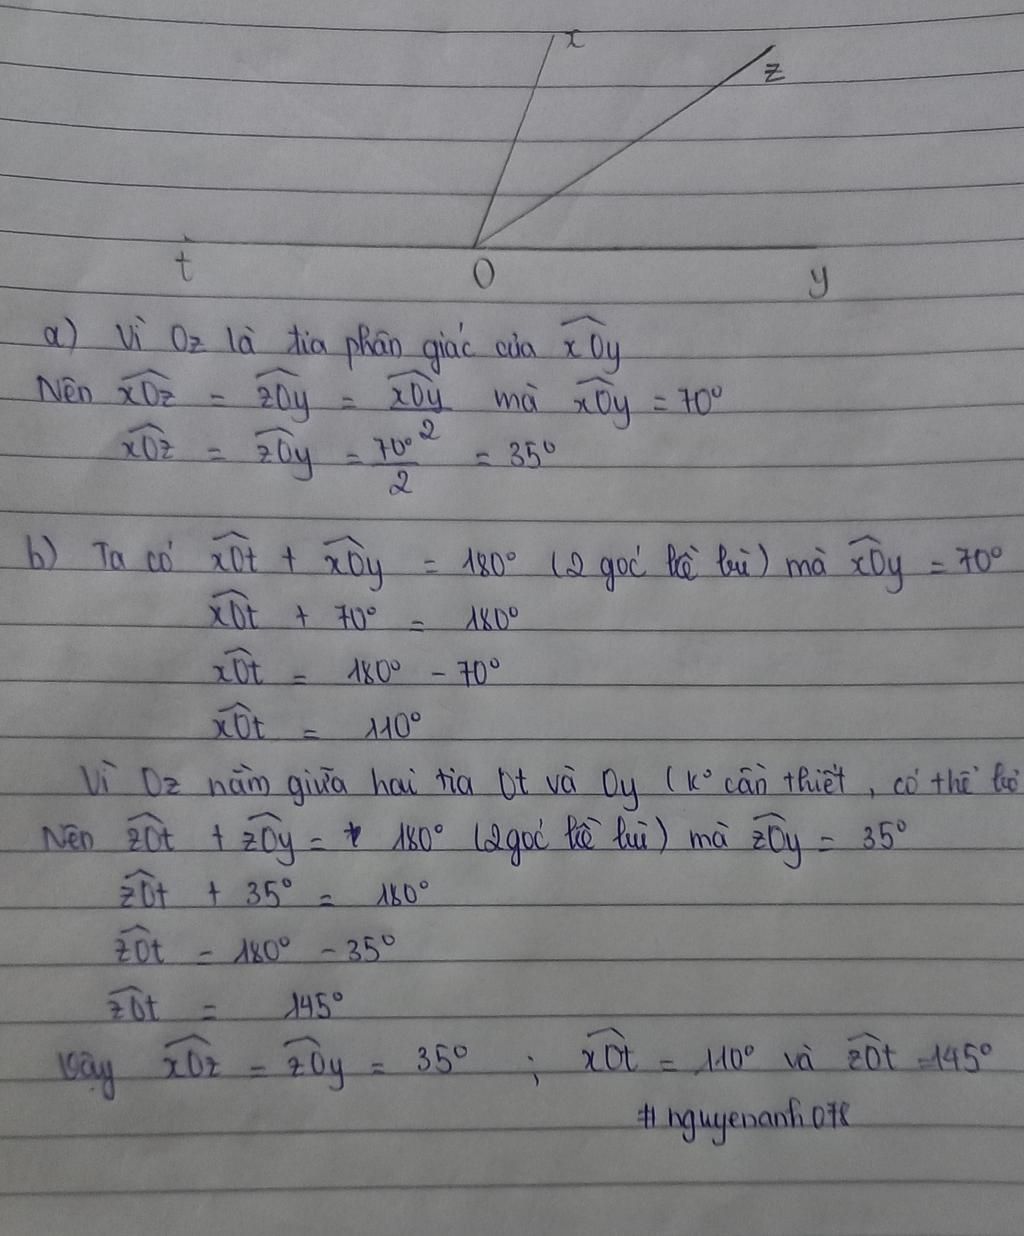 x
z
t
O
y
a) Vì Oz là tia phân giác của \widehat{xOy}
Nên \widehat{xOz} = \widehat{zOy} = \frac{\widehat{xOy}}{2} mà \widehat{xOy} = 70°
\widehat{xOz} = \widehat{zOy} = \frac{70°}{2} = 35°
b) Ta có \widehat{xOt} + \widehat{xOy} = 180° (2 góc kề bù) mà \widehat{xOy} = 70°
\widehat{xOt} + 70° = 180°
\widehat{xOt} = 180° - 70°
\widehat{xOt} = 110°
Vì Oz nằm giữa hai tia Ot và Oy (k° cần thiết, có thể bỏ
Nên \widehat{zOt} + \widehat{zOy} = 180° (2 góc kề bù) mà \widehat{zOy} = 35°
\widehat{zOt} + 35° = 180°
\widehat{zOt} = 180° - 35°
\widehat{zOt} = 145°
Vậy \widehat{xOz} = \widehat{zOy} = 35° ; \widehat{xOt} = 110° và \widehat{zOt} = 145°
# nguyenanh078